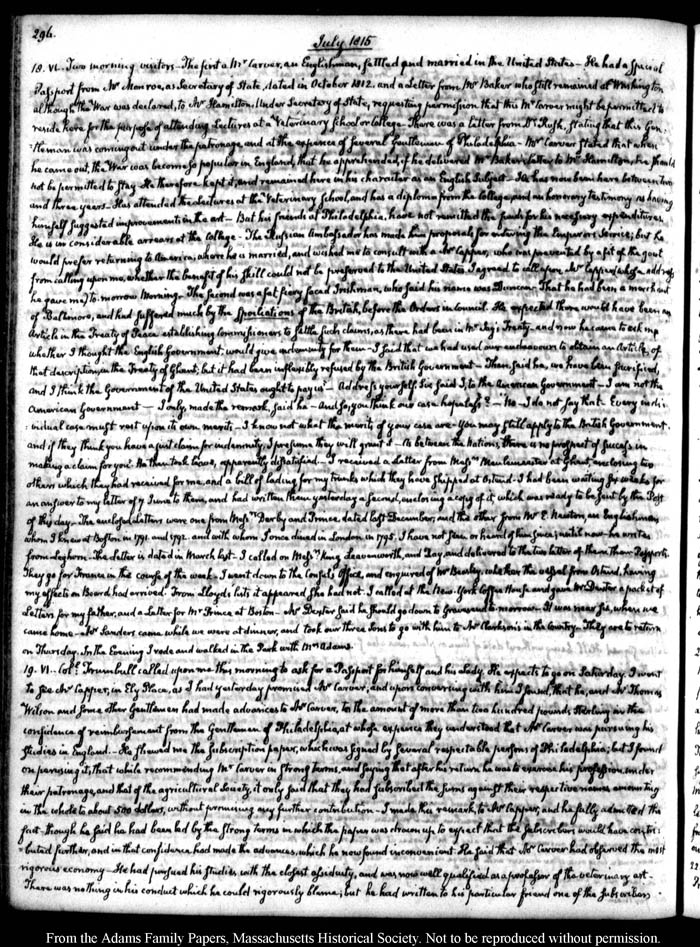 296.
July 1815
18. VI. Two morning visitors — The first a Mr Carver, an Englishman, settled and married in the United States — He had a special
Passport from Mr Monroe, as Secretary of State, dated in October 1812. and a Letter from Mr Baker who still remained at Washington
although the War was declared, to Mr Hamilton, Under Secretary of State, requesting permission that this Mr Carver might be permitted to
reside here for the purpose of attending Lectures at a Veterinary School or College — There was a Letter from Dr Rush, stating that this Gen-
-tleman was coming out under the patronage, and at the expence of several Gentlemen of Philadelphia — Mr Carver stated that when
he came out, the War was become so popular in England, that he apprehended, if he delivered Mr Baker's Letter to Mr Hamilton, he should
not be permitted to stay — He therefore kept it, and remained here in his character as an English Subject — He has now been here between two
and three years — Has attended the lectures at the Veterinary School, and has a diploma from the College, and an honorary testimony as having
himself suggested improvements in the art — But his friends at Philadelphia, have not remitted the funds for his necessary expenditures.
He is in considerable arrears at the College — The Russian Ambassador has made him proposals for entering the Emperor's Service; but he
would prefer returning to America, where he is married, and wished me to consult with a Mr Capper, who was prevented by a fit of the gout
from calling upon me, whether the benefit of his skill could not be preferred to the United States. I agreed to call upon Mr Capper (whose address
he gave me) to-morrow Morning. The second was a fat fiery faced Irishman, who said his name was Duncan. That he had been a merchant
of Baltimore, and had suffered much by the Spoliations of the British, before the Orders in Council. He expected there would have been an
Article in the Treaty of Peace establishing Commissioners to settle such claims, as there had been in Mr Jay's Treaty — and now he came to ask me
whether I thought the English Government, would give indemnity for them — I said that we had used our endeavours to obtain an Article, of
that description, in the Treaty of Ghent, but it had been inflexibly refused by the British Government — Then, said he, we have been sacrificed,
and I think the Government of the United States ought to pay us — Address yourself, Sir, said I, to the American Government — I am not the
American Government — I only made the remark, said he — And so, you think our case hopeless? — No — I do not say that. Every indi-
-vidual case must rest upon its own merits — I know not what the merits of your case are — You may still apply to the British Government.
and if they think you have a just claim for indemnity I presume they will grant it — As between the Nations, there is no prospect of success in
making a claim for you. He then took leave, apparently dissatisfied. — I received a Letter from Messrs Meulemeester at Ghent, enclosing two
others which they had received for me, and a bill of lading for my trunks which they have shipped at Ostend. I had been waiting six weeks for
an answer to my letter of 9 June to them, and had written them yesterday a second, enclosing a copy of it, which was ready to be sent by the Post
of this day. — The enclosed Letters were one from Messrs Darby and Prince, dated last December; and the other from Mr E. Newton, an Englishman
whom I knew at Boston in 1791. and 1792. and with whom I once dined in London in 1795. I have not seen or heard of him since, until now — he writes
from Leghorn. The letter is dated in March last — I called on Messrs King, Leavenworth, and Day, and delivered to the two latter of them their Passports.
They go for France in the course of the week. I went down to the Consul's Office, and enquired of Mr Beasley, whether the vessel from Ostend, having
my effects on Board had arrived. From Lloyds lists it appeared She had not. I called at the New-York Coffee House and gave Mr Dexter a packet of
Letters for my father, and a Letter for Mr Prince at Boston — Mr Dexter said he should go down to Gravesend to-morrow. It was near six, when we
came home — Mr Sanders came, while we were at dinner, and took our three Sons to go with him to Mr Clarkson's in the Country. They are to return
on Thursday. In the Evening I rode and walked in the Park with Mrs Adams.
19. VI. Coll. Trumbull called upon me this morning to ask for a Passport for himself and his Lady. He expects to go on Saturday. I went
to see Mr Capper, in Ely Place, as I had yesterday promised Mr Carver; and upon conversing with him I found, that he, and Mr Thomas
Wilson and some other Gentlemen had made advances to Mr Carver, to the amount of more than two hundred pounds Sterling in the
confidence of reimbursement from the Gentlemen of Philadelphia, at whose expence they understood that Mr Carver was pursuing his
Studies in England. — He shewed me the Subscription paper, which was signed by several respectable persons of Philadelphia; but I found
on perusing it, that while recommending Mr Carver in strong terms, and saying that after his return he was to exercise his profession under
their patronage, and that of the agricultural Society, it only said that they had subscribed the sums against their respective names, amounting
in the whole to about 500 dollars, without promising any further contribution — I made this remark to Mr Capper, and he fully admitted the
fact — though he said he had been led by the strong terms in which the paper was drawn up to expect that the subscribers would have contri-
-buted further, and in that confidence had made the advances, which he now found inconvenient. He said that Mr Carver had observed the most
rigorous economy — He had pursued his studies with the closest assiduity, and was now well qualified as a professor of the veterinary art —
There was nothing in his conduct which he could rigorously blame; but he had written to his particular friend one of the subscribers
From the Adams Family Papers, Massachusetts Historical Society. Not to be reproduced without permission.